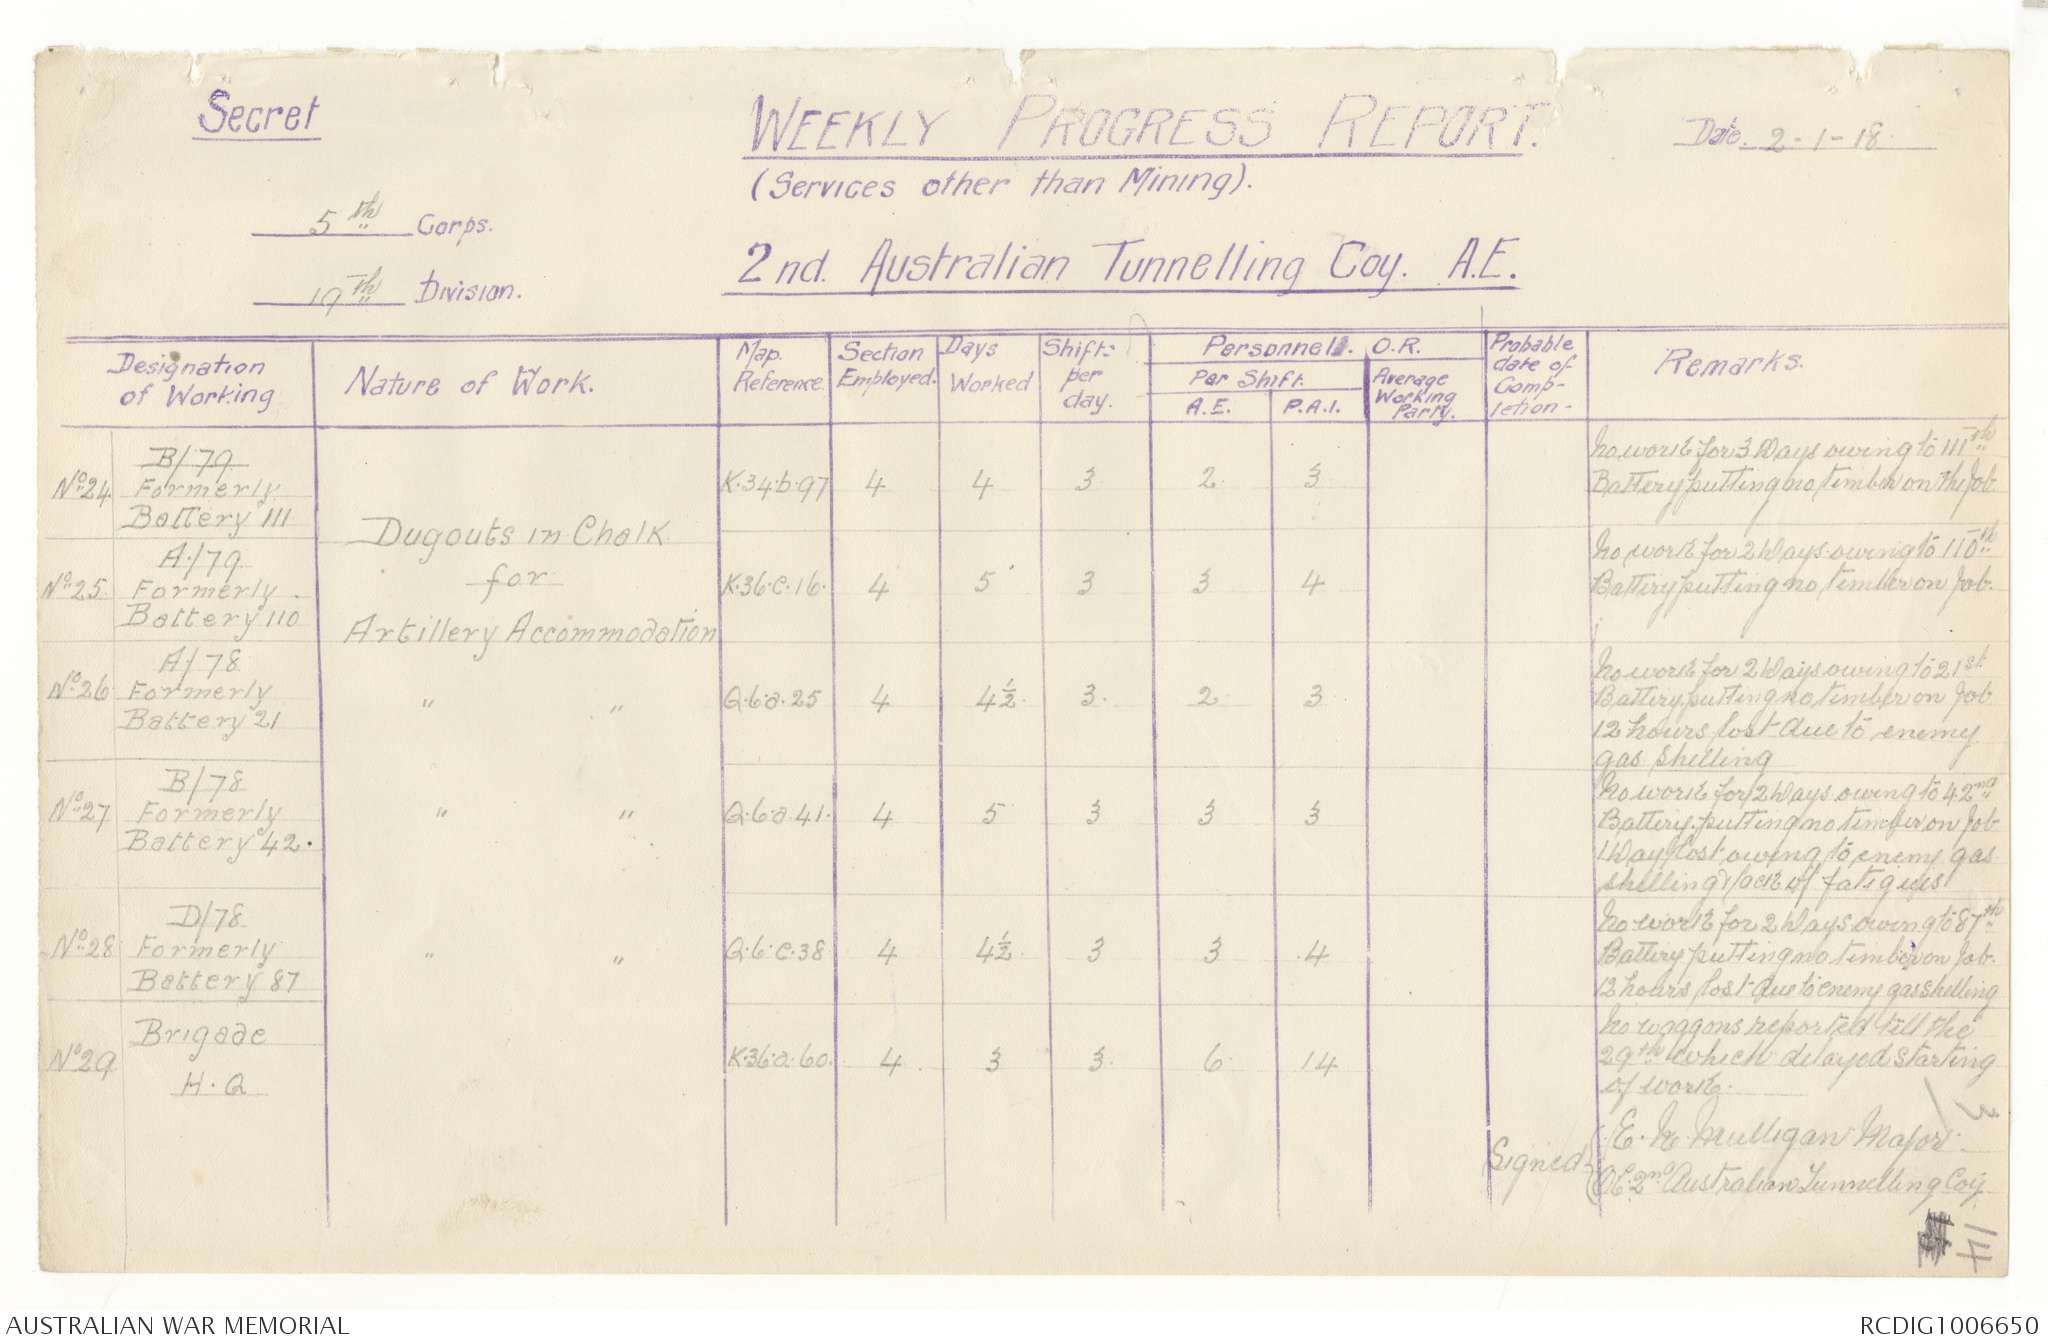 Secret
WEEKLY PROGRESS REPORT.
Date. 2-1-18.
(Services other than Mining).
5th Corps.
19th Division.
2nd. Australian Tunnelling Coy. A.E.
Designation of Working
Nature of Work.
Map. Reference.
Section Employed.
Days Worked
Shifts per day.
Personnel. O.R.
Per Shift.
A.E.
P.A.I.
Average Working Party.
Probable date of Comp-letion-
Remarks.
No 24 B/79 Formerly Battery 111
Dugouts in Chalk
for
Artillery Accommodation
K.34.b.97 4 4 3 2 3
No work for 3 Days owing to 111th
Battery putting no timber on the Job.
No 25. A/79 Formerly Battery 110
K.36.c.16. 4 5 3 3 4
No work for 2 Days owing to 110th
Battery putting no timber on Job.
No 26 A/78 Formerly Battery 21
" "
Q.6.a.25 4 4½ 3. 2 3
No work for 2 Days owing to 21st
Battery putting no timber on Job
12 hours lost due to enemy
gas shelling
No 27 B/78 Formerly Battery 42.
" "
Q.6.a.41. 4 5 3 3 3
No work for 2 Days owing to 42nd
Battery putting no timber on Job
1 Day lost owing to enemy gas
shelling & lack of fatigues
No 28 D/78 Formerly Battery 87
" "
Q.6.c.38 4 4½ 3 3 4
No work for 2 Days owing to 87th
Battery putting no timber on Job.
12 hours lost due to enemy gas shelling
No 29 Brigade H.Q
K.36.a.60. 4 3 3. 6 14
No waggons reported till the
29th which delayed starting
of work.
Signed
E. N. Mulligan Major.
OC. 2nd Australian Tunnelling Coy.
AUSTRALIAN WAR MEMORIAL
RCDIG1006650